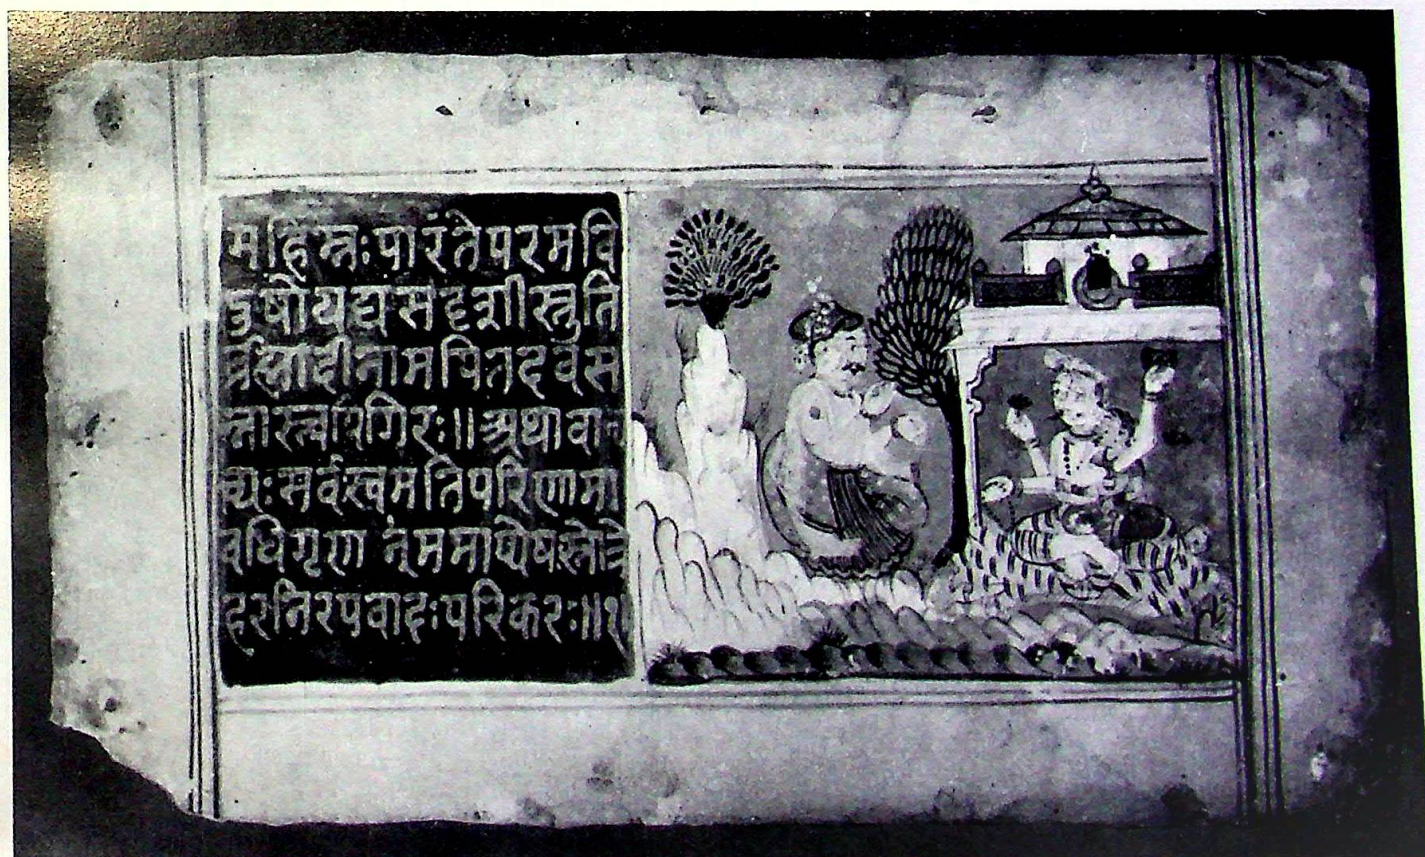 महिम्नःपारंतेपरमवि
दुषोयद्यसदृशीस्तुति
र्ब्रह्मादीनामपितदवस
न्नास्त्वयिगिरः॥अथावा
च्यःसर्वःस्वमतिपरिणामा
वधिगृणन्ममाप्येषस्तोत्रे
हरनिरपवादःपरिकरः॥१